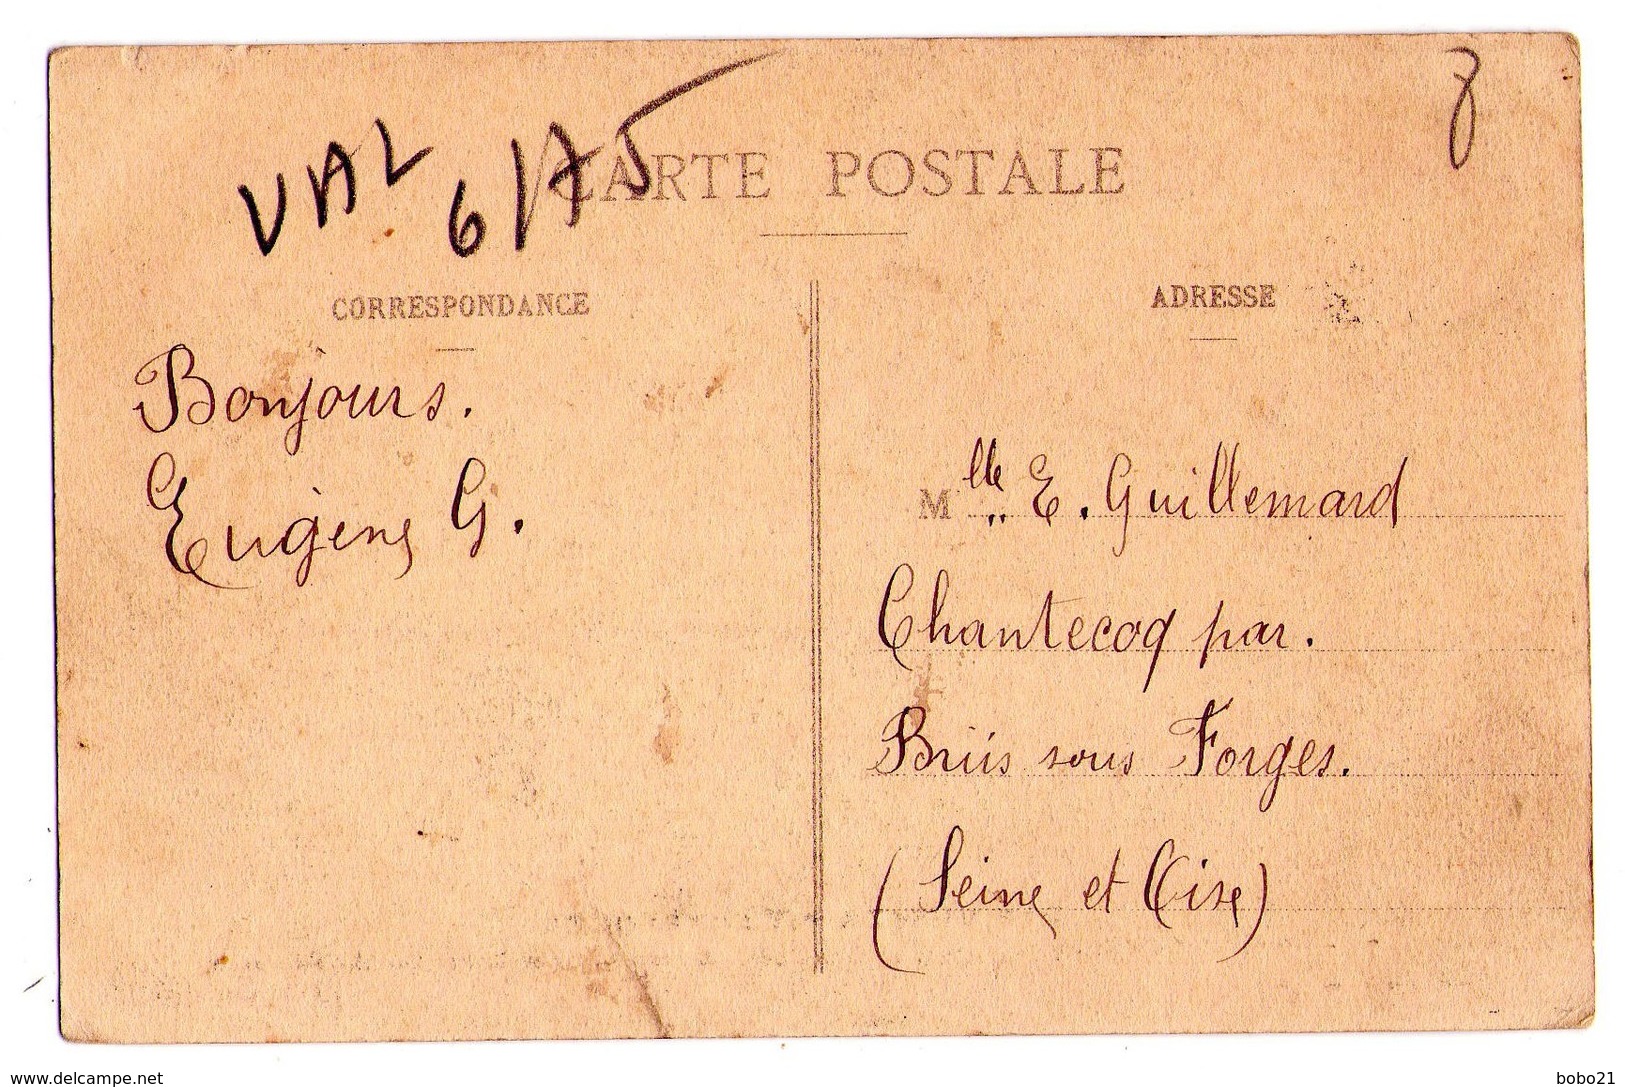 VAL 6/75
CARTE POSTALE
CORRESPONDANCE
Bonjours.
Eugène G.
ADRESSE
Mlle E. Guillemard
Chantecoq par.
Briis sous Forges.
(Seine et Oise)
www.delcampe.net
bobo21